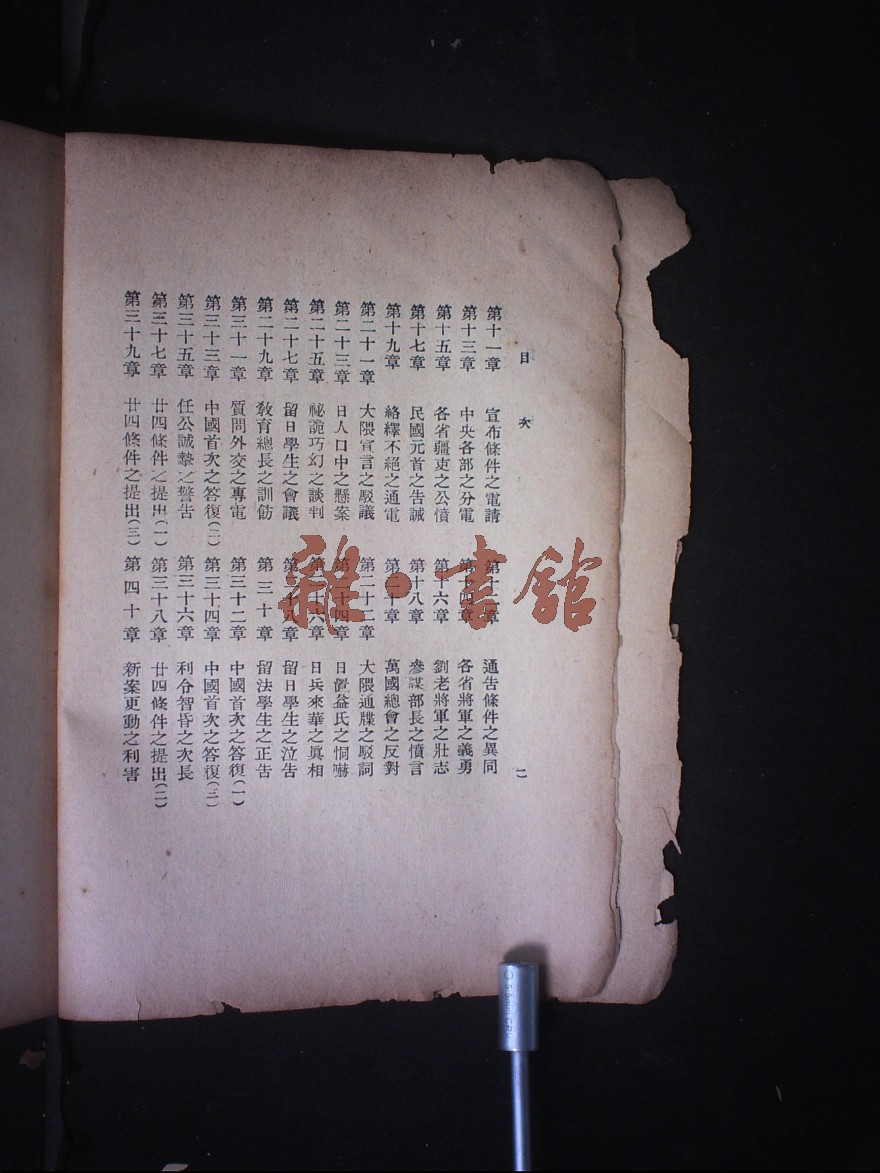 目次
二
第十一章 宣布條件之電請 第十二章 通告條件之異同
第十三章 中央各部之分電 第十四章 各省將軍之義勇
第十五章 各省疆吏之公憤 第十六章 劉老將軍之壯志
第十七章 民國元首之告誡 第十八章 參謀部長之憤言
第十九章 絡繹不絕之通電 第二十章 萬國總會之反對
第二十一章 大隈宣言之駁議 第二十二章 大隈通牒之駁詞
第二十三章 日人口中之懸案 第二十四章 日置益氏之恫嚇
第二十五章 祕詭巧幻之談判 第二十六章 日兵來華之眞相
第二十七章 留日學生之會議 第二十八章 留日學生之泣告
第二十九章 敎育總長之訓飭 第三十章 留法學生之正告
第三十一章 質問外交之專電 第三十二章 中國首次之答復(一)
第三十三章 中國首次之答復(二) 第三十四章 中國首次之答復(三)
第三十五章 任公誠摯之警告 第三十六章 利令智昏之次長
第三十七章 廿四條件之提出(一) 第三十八章 廿四條件之提出(二)
第三十九章 廿四條件之提出(三) 第四十章 新案更動之利害
雜·書館
5.5mm CRV